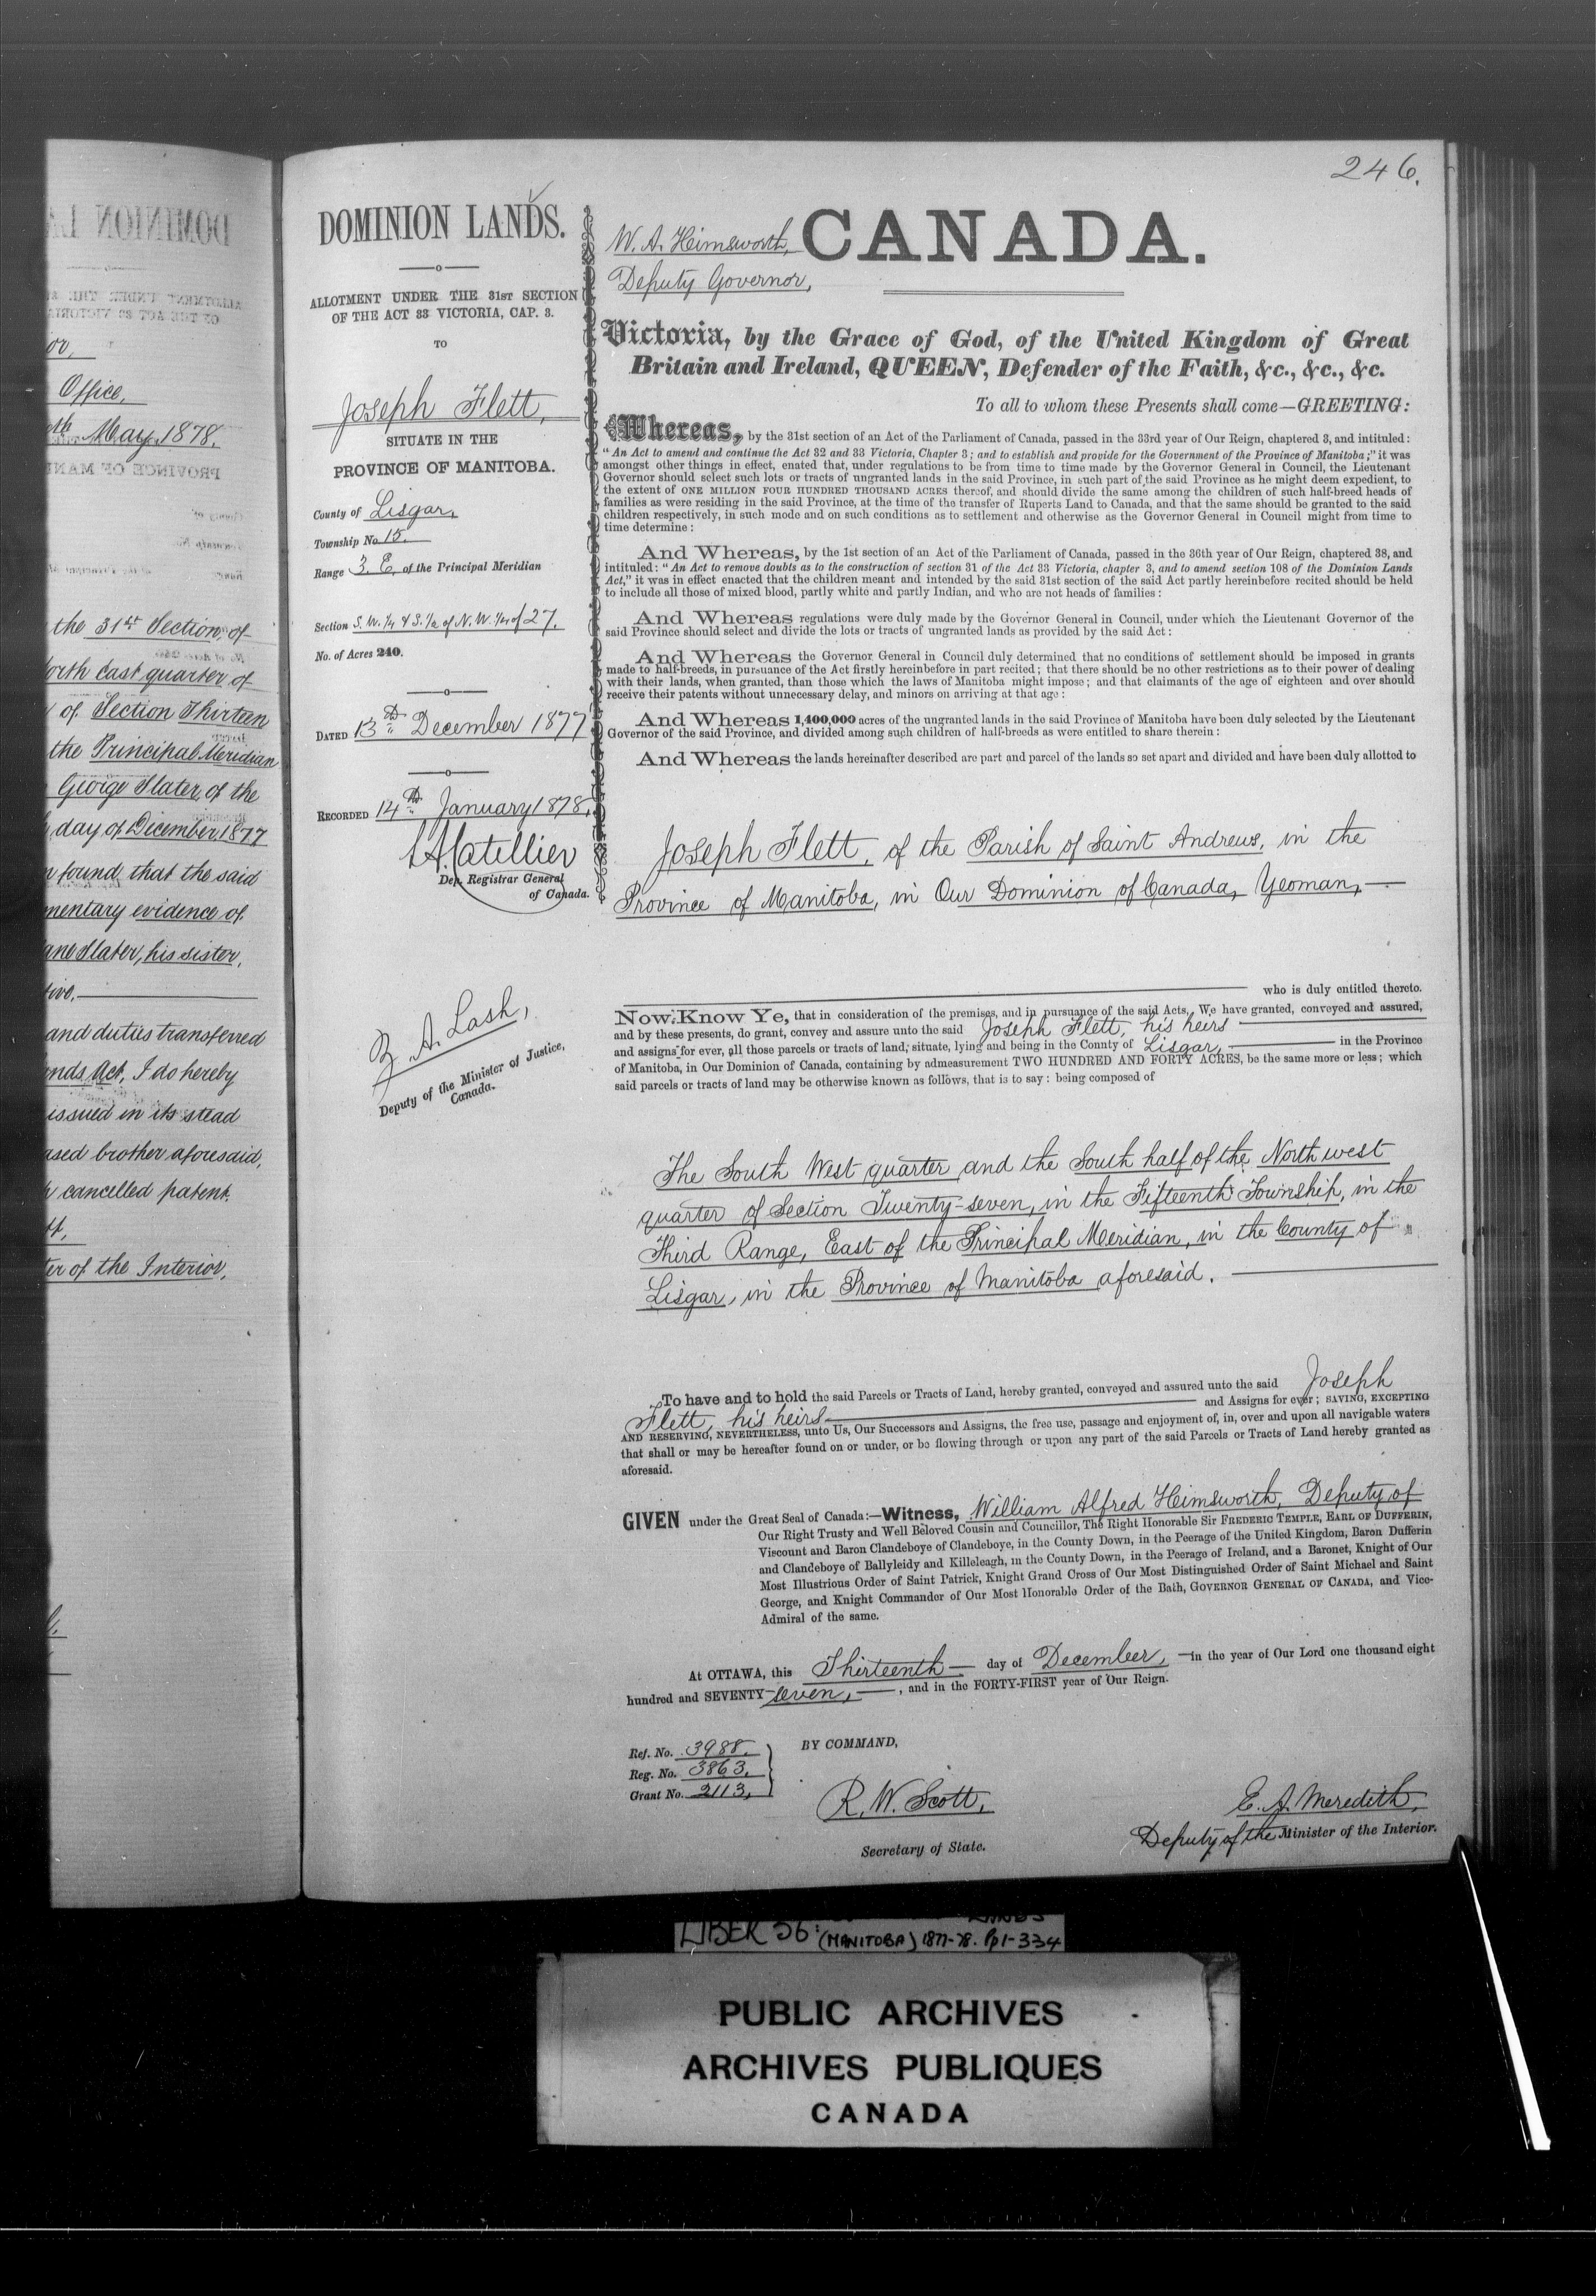 246.
DOMINION LA
ALLOTMENT UNDER THE 31
OF THE ACT 33 VICTORIA
or,
Office,
th May, 1878.
PROVINCE OF MANI
the 31st Section, of
orth East quarter of
of Section Thirteen
the Principal Meridian
George Slater, of the
day of December, 1877
found, that the said
mentary evidence of
ane Slater, his sister,
tive.
and duties transferred
nds Act, I do hereby
issued in its stead
ased brother aforesaid,
cancelled patent.
er of the Interior.
DOMINION LANDS.
ALLOTMENT UNDER THE 31ST SECTION
OF THE ACT 33 VICTORIA, CAP. 3.
TO
Joseph Flett,
SITUATE IN THE
PROVINCE OF MANITOBA.
County of Lisgar,
Township No 15.
Range 3. E, of the Principal Meridian
Section S. W. 1/4 & S. 1/2 of N. W. 1/4 of 27.
No. of Acres 240.
DATED 13th December 1877
RECORDED 14th January 1878,
L. A. Catellier
Dep. Registrar General
of Canada.
Z. A. Lash,
Deputy of the Minister of Justice,
Canada.
W. A. Himsworth,
Deputy Governor,
CANADA.
Victoria, by the Grace of God, of the United Kingdom of Great
Britain and Ireland, QUEEN, Defender of the Faith, &c., &c., &c.
To all to whom these Presents shall come—GREETING:
Whereas, by the 31st section of an Act of the Parliament of Canada, passed in the 33rd year of Our Reign, chaptered 3, and intituled:
"An Act to amend and continue the Act 32 and 33 Victoria, Chapter 3; and to establish and provide for the Government of the Province of Manitoba;" it was
amongst other things in effect, enated that, under regulations to be from time to time made by the Governor General in Council, the Lieutenant
Governor should select such lots or tracts of ungranted lands in the said Province, in such part of the said Province as he might deem expedient, to
the extent of ONE MILLION FOUR HUNDRED THOUSAND ACRES thereof, and should divide the same among the children of such half-breed heads of
families as were residing in the said Province, at the time of the transfer of Ruperts Land to Canada, and that the same should be granted to the said
children respectively, in such mode and on such conditions as to settlement and otherwise as the Governor General in Council might from time to
time determine:
And Whereas, by the 1st section of an Act of the Parliament of Canada, passed in the 36th year of Our Reign, chaptered 38, and
intituled: "An Act to remove doubts as to the construction of section 31 of the Act 33 Victoria, chapter 3, and to amend section 108 of the Dominion Lands
Act," it was in effect enacted that the children meant and intended by the said 31st section of the said Act partly hereinbefore recited should be held
to include all those of mixed blood, partly white and partly Indian, and who are not heads of families:
And Whereas regulations were duly made by the Governor General in Council, under which the Lieutenant Governor of the
said Province should select and divide the lots or tracts of ungranted lands as provided by the said Act:
And Whereas the Governor General in Council duly determined that no conditions of settlement should be imposed in grants
made to half-breeds, in pursuance of the Act firstly hereinbefore in part recited; that there should be no other restrictions as to their power of dealing
with their lands, when granted, than those which the laws of Manitoba might impose; and that claimants of the age of eighteen and over should
receive their patents without unnecessary delay, and minors on arriving at that age:
And Whereas 1,400,000 acres of the ungranted lands in the said Province of Manitoba have been duly selected by the Lieutenant
Governor of the said Province, and divided among such children of half-breeds as were entitled to share therein:
And Whereas the lands hereinafter described are part and parcel of the lands so set apart and divided and have been duly allotted to
Joseph Flett, of the Parish of Saint Andrews, in the
Province of Manitoba, in Our Dominion of Canada, Yeoman,
who is duly entitled thereto.
Now Know Ye, that in consideration of the premises, and in pursuance of the said Acts, We have granted, conveyed and assured,
and by these presents, do grant, convey and assure unto the said Joseph Flett, his heirs
and assigns for ever, all those parcels or tracts of land, situate, lying and being in the County of Lisgar, in the Province
of Manitoba, in Our Dominion of Canada, containing by admeasurement TWO HUNDRED AND FORTY ACRES, be the same more or less; which
said parcels or tracts of land may be otherwise known as follows, that is to say: being composed of
The South West quarter and the South half of the North west
quarter of Section Twenty-seven, in the Fifteenth Township, in the
Third Range, East of the Principal Meridian, in the County of
Lisgar, in the Province of Manitoba aforesaid.
To have and to hold the said Parcels or Tracts of Land, hereby granted, conveyed and assured unto the said Joseph
Flett, his heirs and Assigns for ever; SAVING, EXCEPTING
AND RESERVING, NEVERTHELESS, unto Us, Our Successors and Assigns, the free use, passage and enjoyment of, in, over and upon all navigable waters
that shall or may be hereafter found on or under, or be flowing through or upon any part of the said Parcels or Tracts of Land hereby granted as
aforesaid.
GIVEN under the Great Seal of Canada:—Witness, William Alfred Himsworth, Deputy of
Our Right Trusty and Well Beloved Cousin and Councillor, The Right Honorable Sir FREDERIC TEMPLE, EARL OF DUFFERIN,
Viscount and Baron Clandeboye of Clandeboye, in the County Down, in the Peerage of the United Kingdom, Baron Dufferin
and Clandeboye of Ballyleidy and Killeleagh, in the County Down, in the Peerage of Ireland, and a Baronet, Knight of Our
Most Illustrious Order of Saint Patrick, Knight Grand Cross of Our Most Distinguished Order of Saint Michael and Saint
George, and Knight Commander of Our Most Honorable Order of the Bath, GOVERNOR GENERAL OF CANADA, and Vice-
Admiral of the same.
At OTTAWA, this Thirteenth day of December, in the year of Our Lord one thousand eight
hundred and SEVENTY-seven, and in the FORTY-FIRST year of Our Reign.
Ref. No. 3988.
Reg. No. 3863.
Grant No. 2113,
BY COMMAND,
R. W. Scott,
Secretary of State.
E. A. Meredith,
Deputy of the Minister of the Interior.
LIBER 56: LANDS
(MANITOBA) 1877-78. Pp 1-334
PUBLIC ARCHIVES
ARCHIVES PUBLIQUES
CANADA